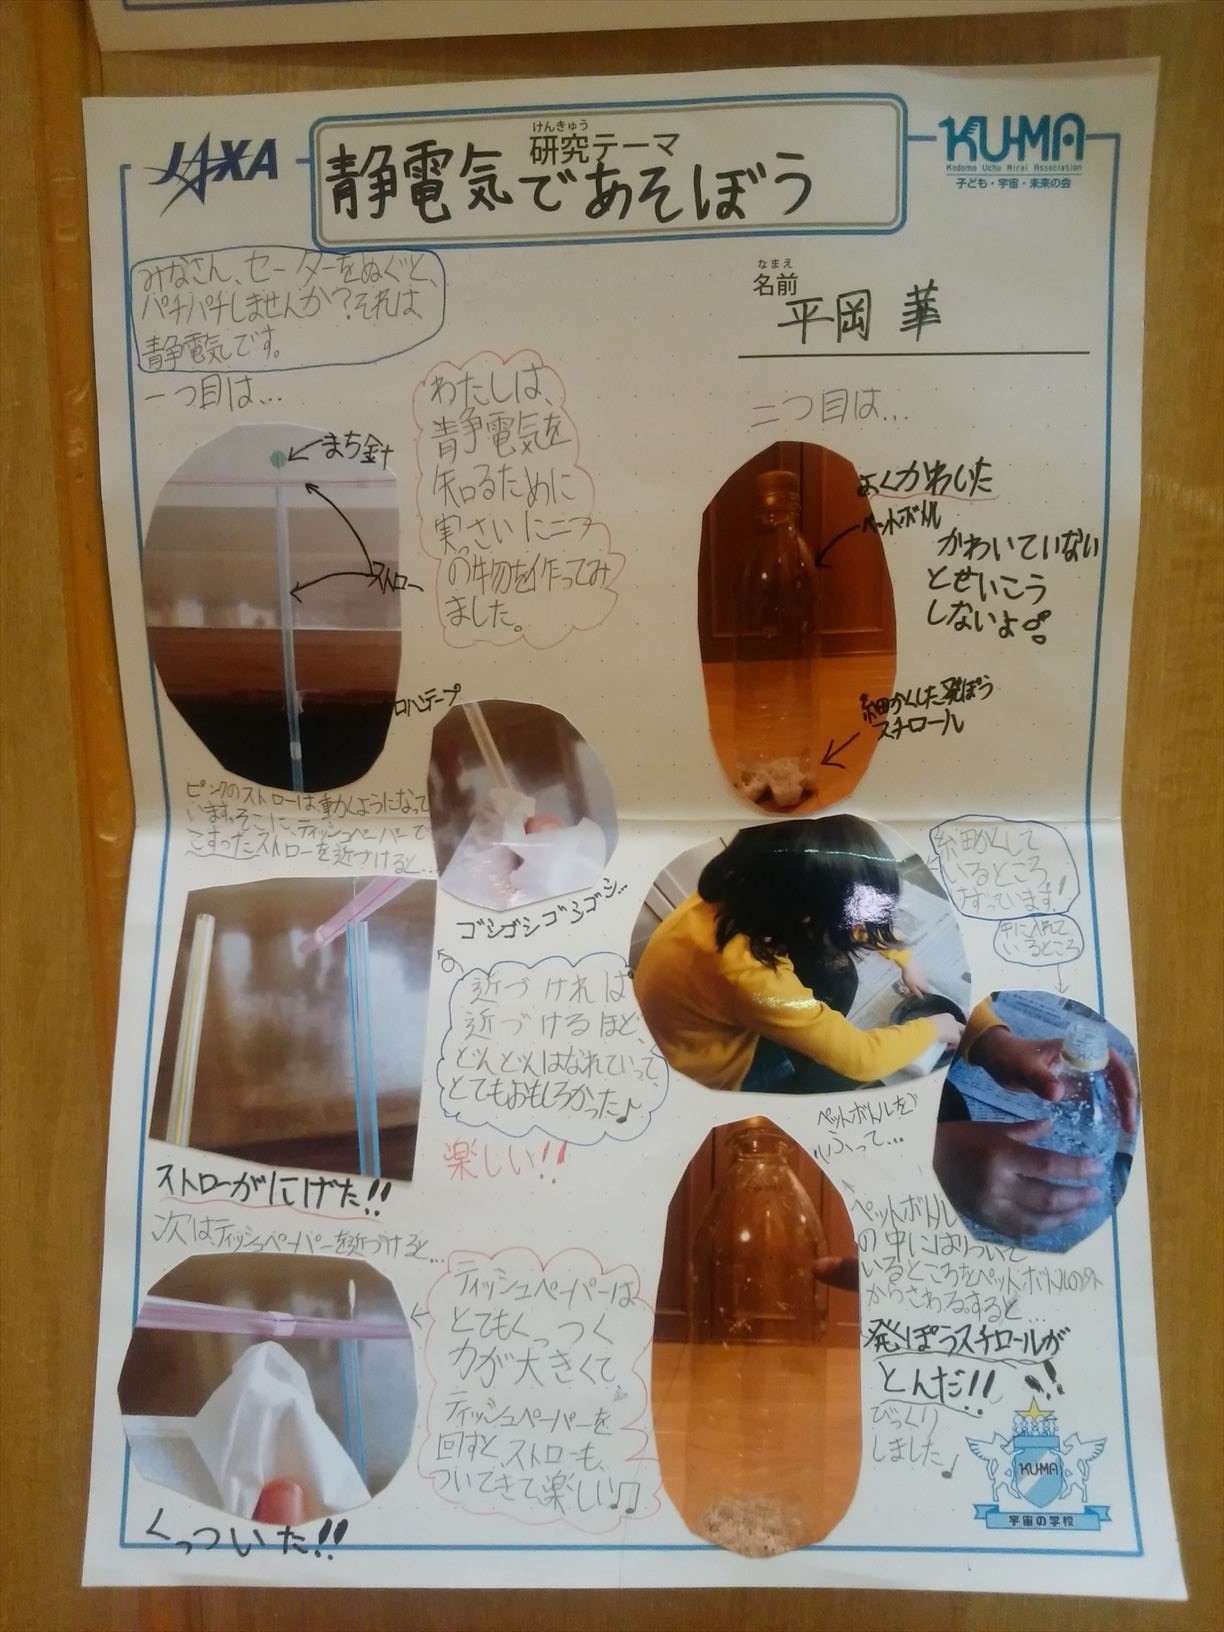 JAXA
けんきゅう
研究テーマ
静電気であそぼう
KU-MA
Kodomo Uchu Mirai Association
子ども・宇宙・未来の会
なまえ
名前
平岡 華
みなさん、セーターをぬぐと、
パチパチしませんか?それは、
静電気です。
一つ目は…
まち金十
ストロー
セロハンテープ
わたしは、
静電気を
知るために
実さいに二つ
の物を作ってみ
ました。
ピンクのストローは、動くようになって
います。そこに、ティッシュペーパーで
こすったストローを近づけると…
ゴシゴシゴシゴシ…
近づければ
近づけるほど、
どんどんはなれていって、
とてもおもしろかった♪
楽しい!!
ストローがにげた!!
次は、ティッシュペーパーを近づけると…
ティッシュペーパーは
とてもくっつく
力が大きくて、
ティッシュペーパーを
回すと、ストローも、
ついてきて楽しい♫
くっついた!!
二つ目は…
よくかわいた
ペットボトル
かわいていない
とせいこう
しないよ
細かくした発ぽう
スチロール
細かくして
いるところ
けずっています!
中に入れて
いるところ
ペットボトルを
ふって…
ペットボトル
の中にはりついて
いるところをペットボトルの外
からさわる。すると…
発ぽうスチロールが
とんだ!!
びっくり
しました♪
KUMA
宇宙の学校